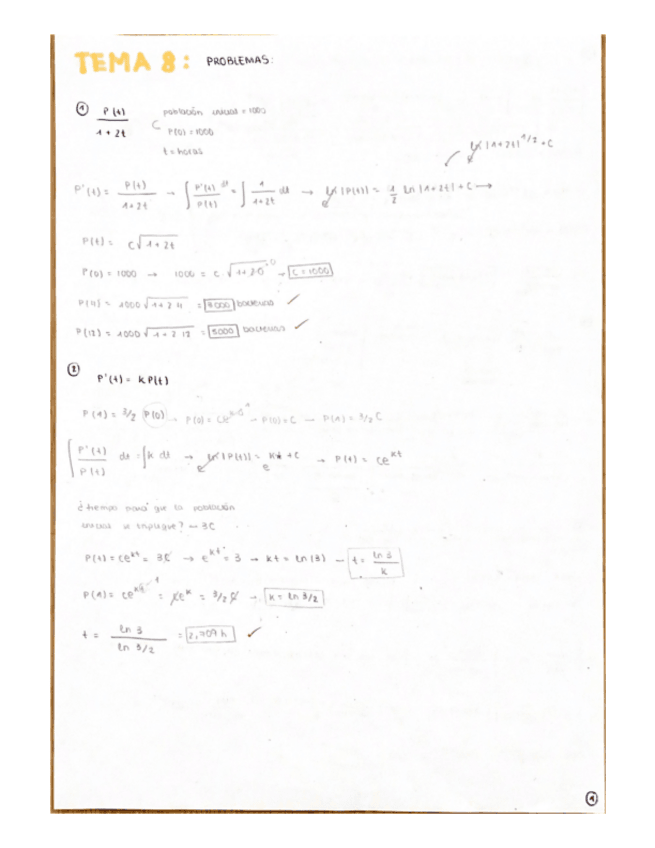 TEMA 8: PROBLEMAS:
① P(t) / 1+2t
población inicial = 1000
P(0) = 1000
t = horas
ln |1+2t|^1/2 + C
P'(t) = P(t) / 1+2t → ∫ P'(t) / P(t) dt = ∫ 1 / 1+2t dt → ln |P(t)| = 1/2 ln |1+2t| + C →
P(t) = C√1+2t
P(0) = 1000 → 1000 = C · √1+2·0 → C = 1000
P(4) = 1000 √1+2·4 = 3000 bacterias ✓
P(12) = 1000 √1+2·12 = 5000 bacterias ✓
② P'(t) = k P(t)
P(1) = 3/2 P(0) → P(0) = Ce^k·0 → P(0) = C → P(1) = 3/2 C
∫ P'(t) / P(t) dt = ∫ k dt → ln |P(t)| = kt + C → P(t) = Ce^kt
¿tiempo para que la población
inicial se triplique? → 3C
P(t) = Ce^kt = 3C → e^kt = 3 → kt = ln(3) → t = ln 3 / k
P(1) = Ce^kt = Ce^k = 3/2 C → k = ln 3/2
t = ln 3 / ln 3/2 = 2,709 h ✓
1